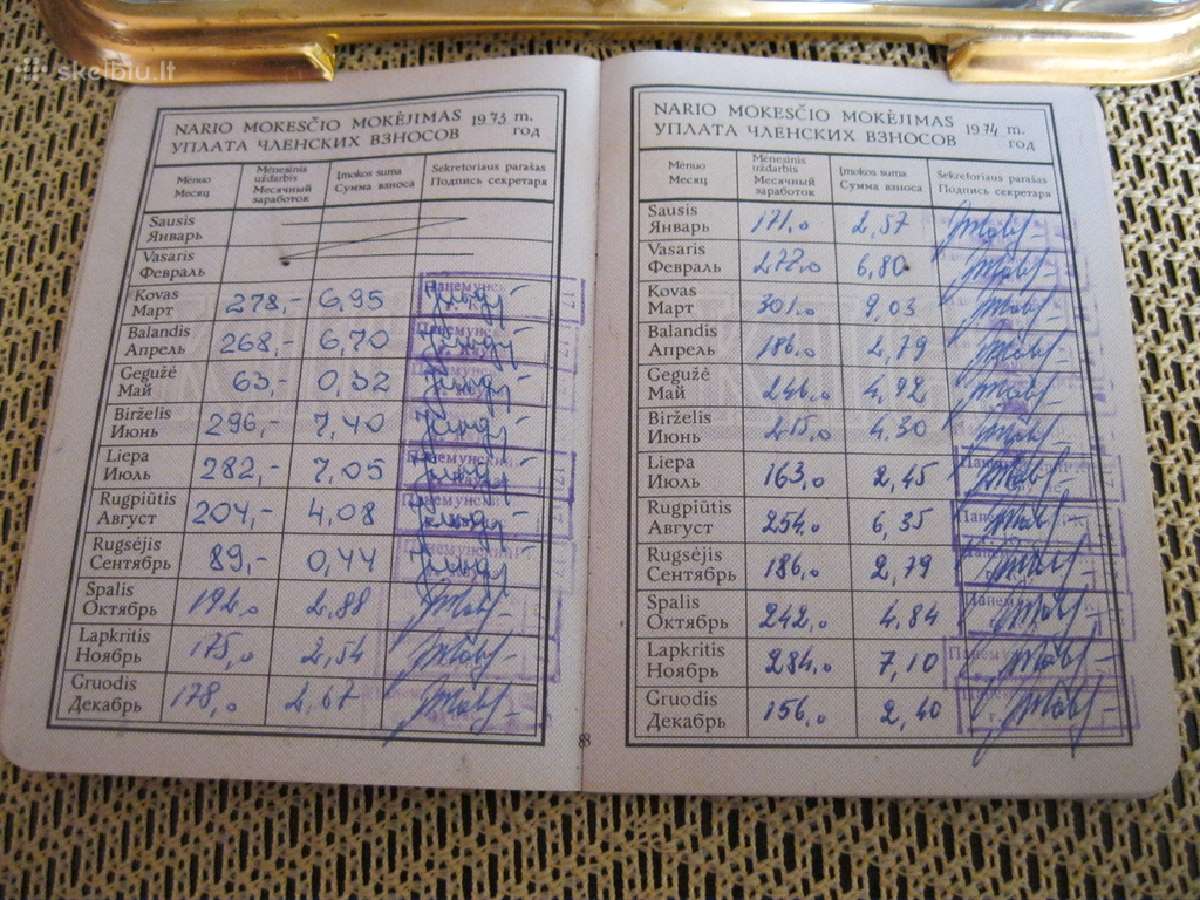 skelbiu.lt
NARIO MOKESČIO MOKĖJIMAS 1973 m.
УПЛАТА ЧЛЕНСКИХ ВЗНОСОВ год
Mėnuo Mėnesinis uždarbis Įmokos suma Sekretoriaus parašas
Месяц Месячный заработок Сумма взноса Подпись секретаря
Sausis
Январь
Vasaris
Февраль
Kovas
Март 278,- 6,95
Balandis
Апрель 268,- 6,70
Gegužė
Май 63,- 0,32
Birželis
Июнь 296,- 7,40
Liepa
Июль 282,- 7,05
Rugpiūtis
Август 204,- 4,08
Rugsėjis
Сентябрь 89,- 0,44
Spalis
Октябрь 192,0 2,88
Lapkritis
Ноябрь 175,0 2,54
Gruodis
Декабрь 178,0 2,67
88
NARIO MOKESČIO MOKĖJIMAS 1974 m.
УПЛАТА ЧЛЕНСКИХ ВЗНОСОВ год
Mėnuo Mėnesinis uždarbis Įmokos suma Sekretoriaus parašas
Месяц Месячный заработок Сумма взноса Подпись секретаря
Sausis
Январь 171,0 2,57
Vasaris
Февраль 272,0 6,80
Kovas
Март 301,0 9,03
Balandis
Апрель 186,0 2,79
Gegužė
Май 246,0 4,92
Birželis
Июнь 215,0 4,30
Liepa
Июль 163,0 2,45
Rugpiūtis
Август 254,0 6,35
Rugsėjis
Сентябрь 186,0 2,79
Spalis
Октябрь 242,0 4,84
Lapkritis
Ноябрь 284,0 7,10
Gruodis
Декабрь 156,0 2,40